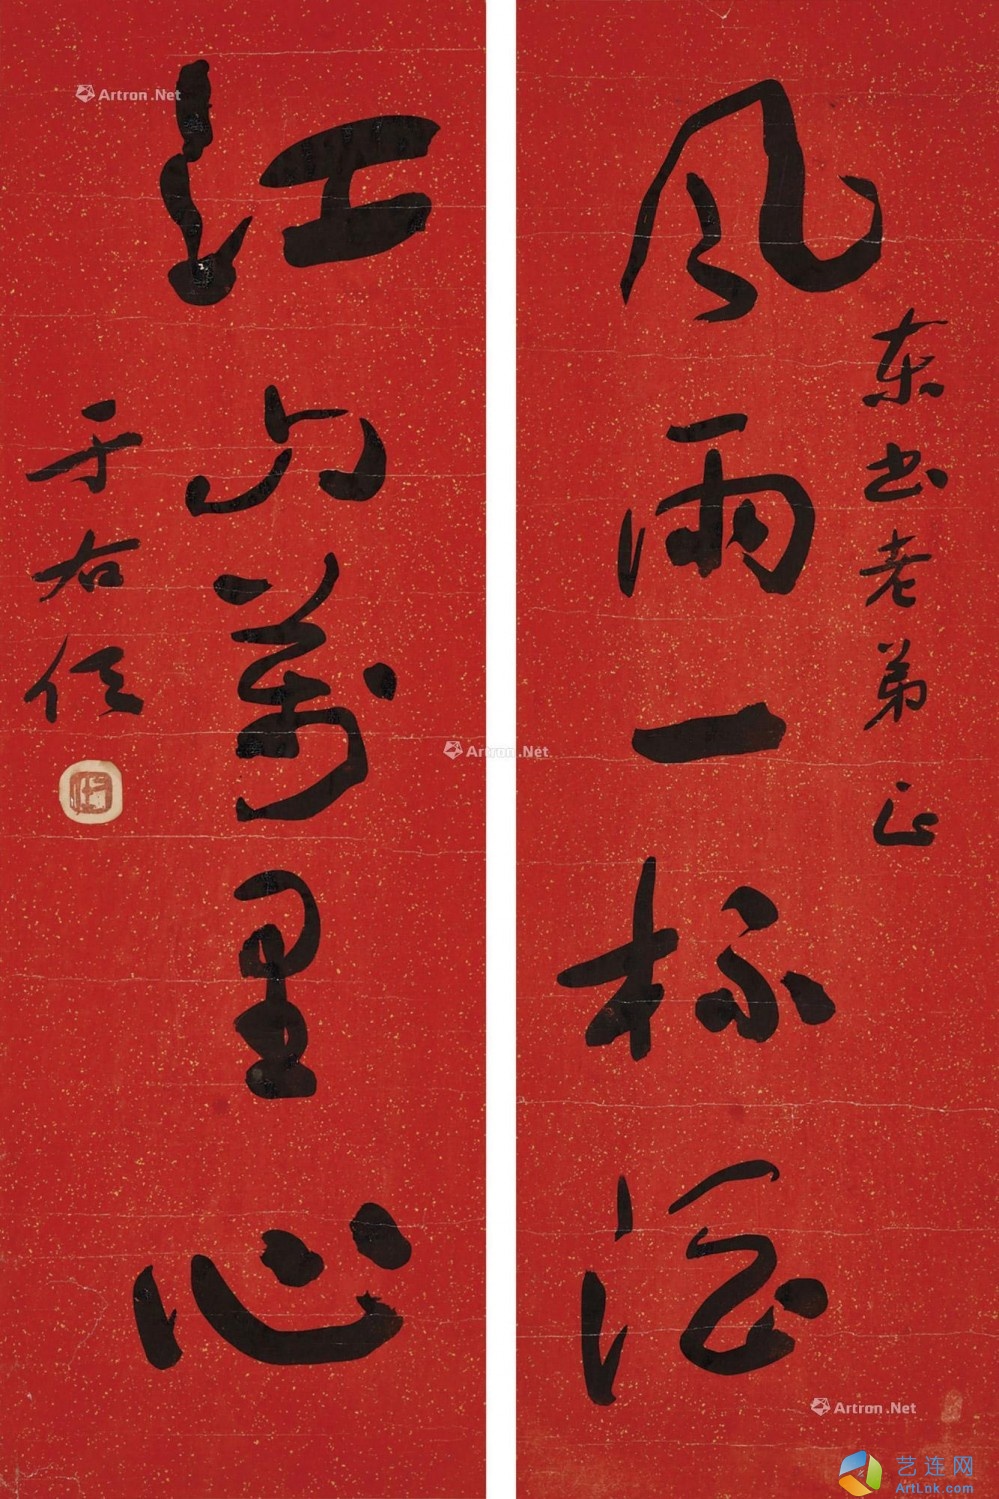 风雨一杯酒
东书老弟正
江山萬里心
于右任
Artron.Net
Artron.Net
Artron.Net
艺连网
ArtLnk.com